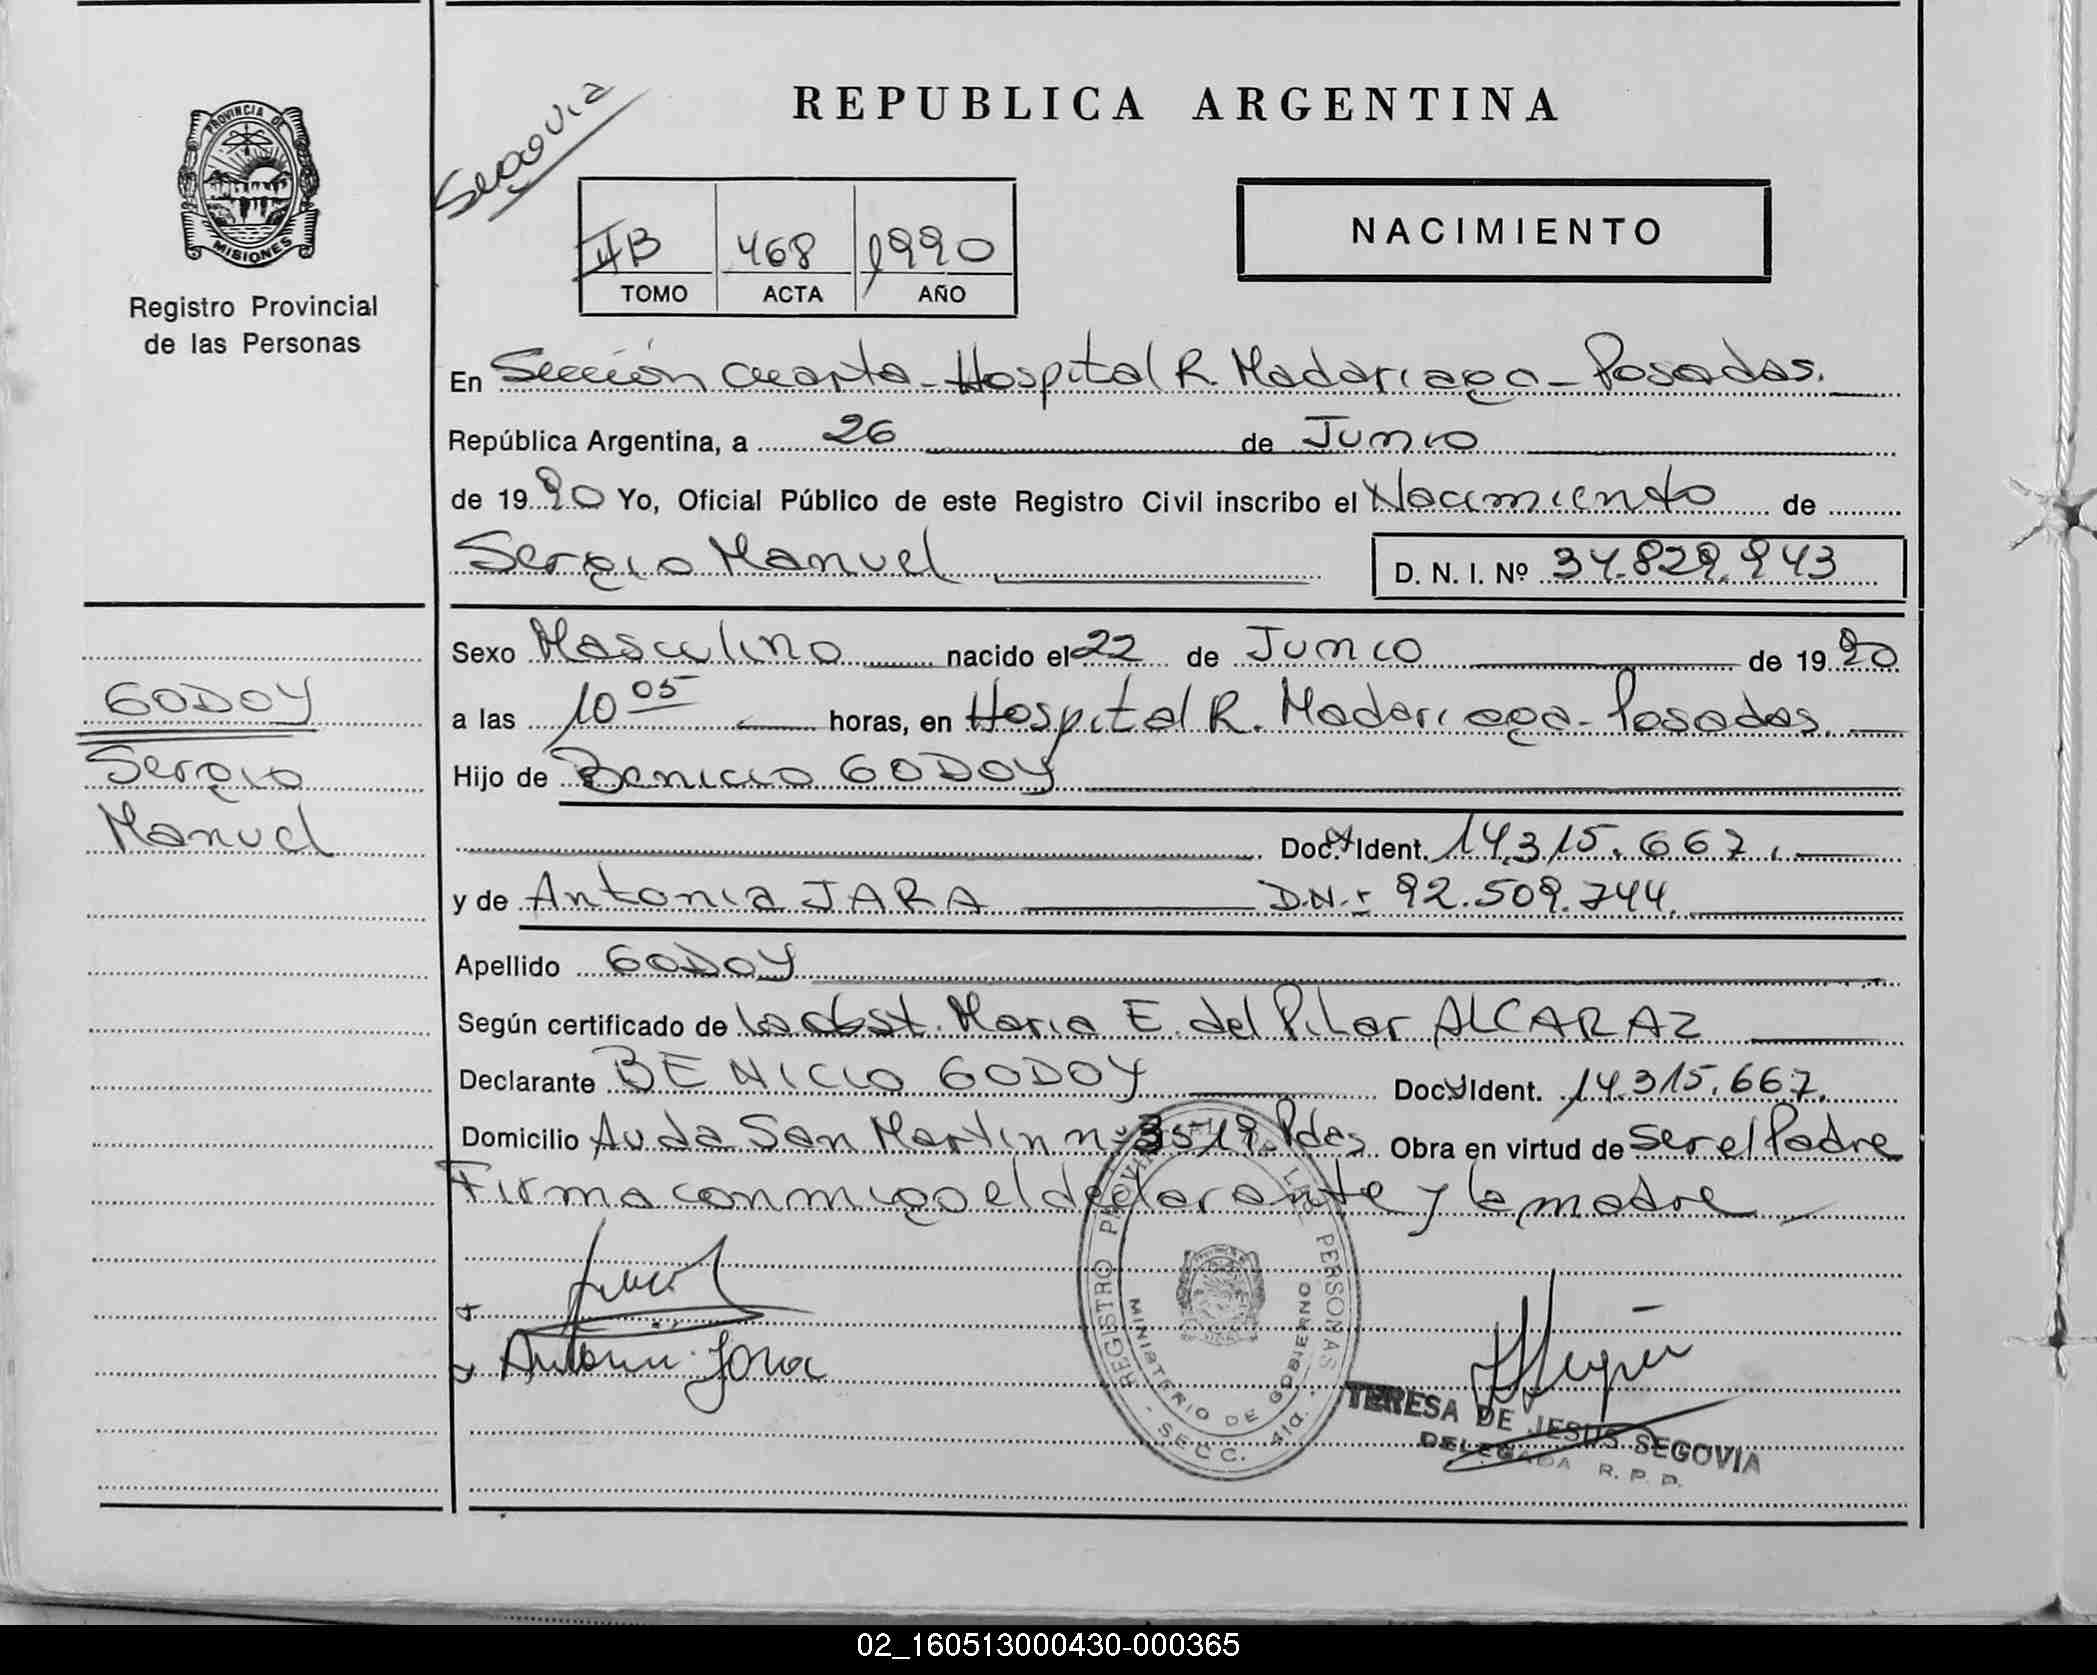 PROVINCIA DE
MISIONES
Registro Provincial
de las Personas
Segovia
REPUBLICA ARGENTINA
NACIMIENTO
IIB 468 1990
TOMO ACTA AÑO
En Sección cuarta - Hospital R. Madariaga - Posadas.
República Argentina, a 26 de Junio
de 1990 Yo, Oficial Público de este Registro Civil inscribo el Nacimiento de
Sergio Manuel D. N. I. Nº 34.829.943
Sexo Masculino nacido el 22 de Junio de 1990
GODOY
Sergio
Manuel
a las 10 05 horas, en Hospital R. Madariaga - Posadas.
Hijo de Benicio GODOY
Doc. Ident. 14.315.667.
y de Antonia JARA D.N.I 92.509.744.
Apellido GODOY
Según certificado de la obst. Maria E. del Pilar ALCARAZ
Declarante BENICIO GODOY Doc. Ident. 14.315.667.
Domicilio Avda San Martin nº 3519. Pdas. Obra en virtud de ser el Padre
Firma conmigo el declarante y la madre
Antonia Jara
REGISTRO PROVINCIAL DE LAS PERSONAS
MINISTERIO DE GOBIERNO
- SECC. 4ta. -
TERESA DE JESUS SEGOVIA
DELEGADA R. P. P.
02_160513000430-000365